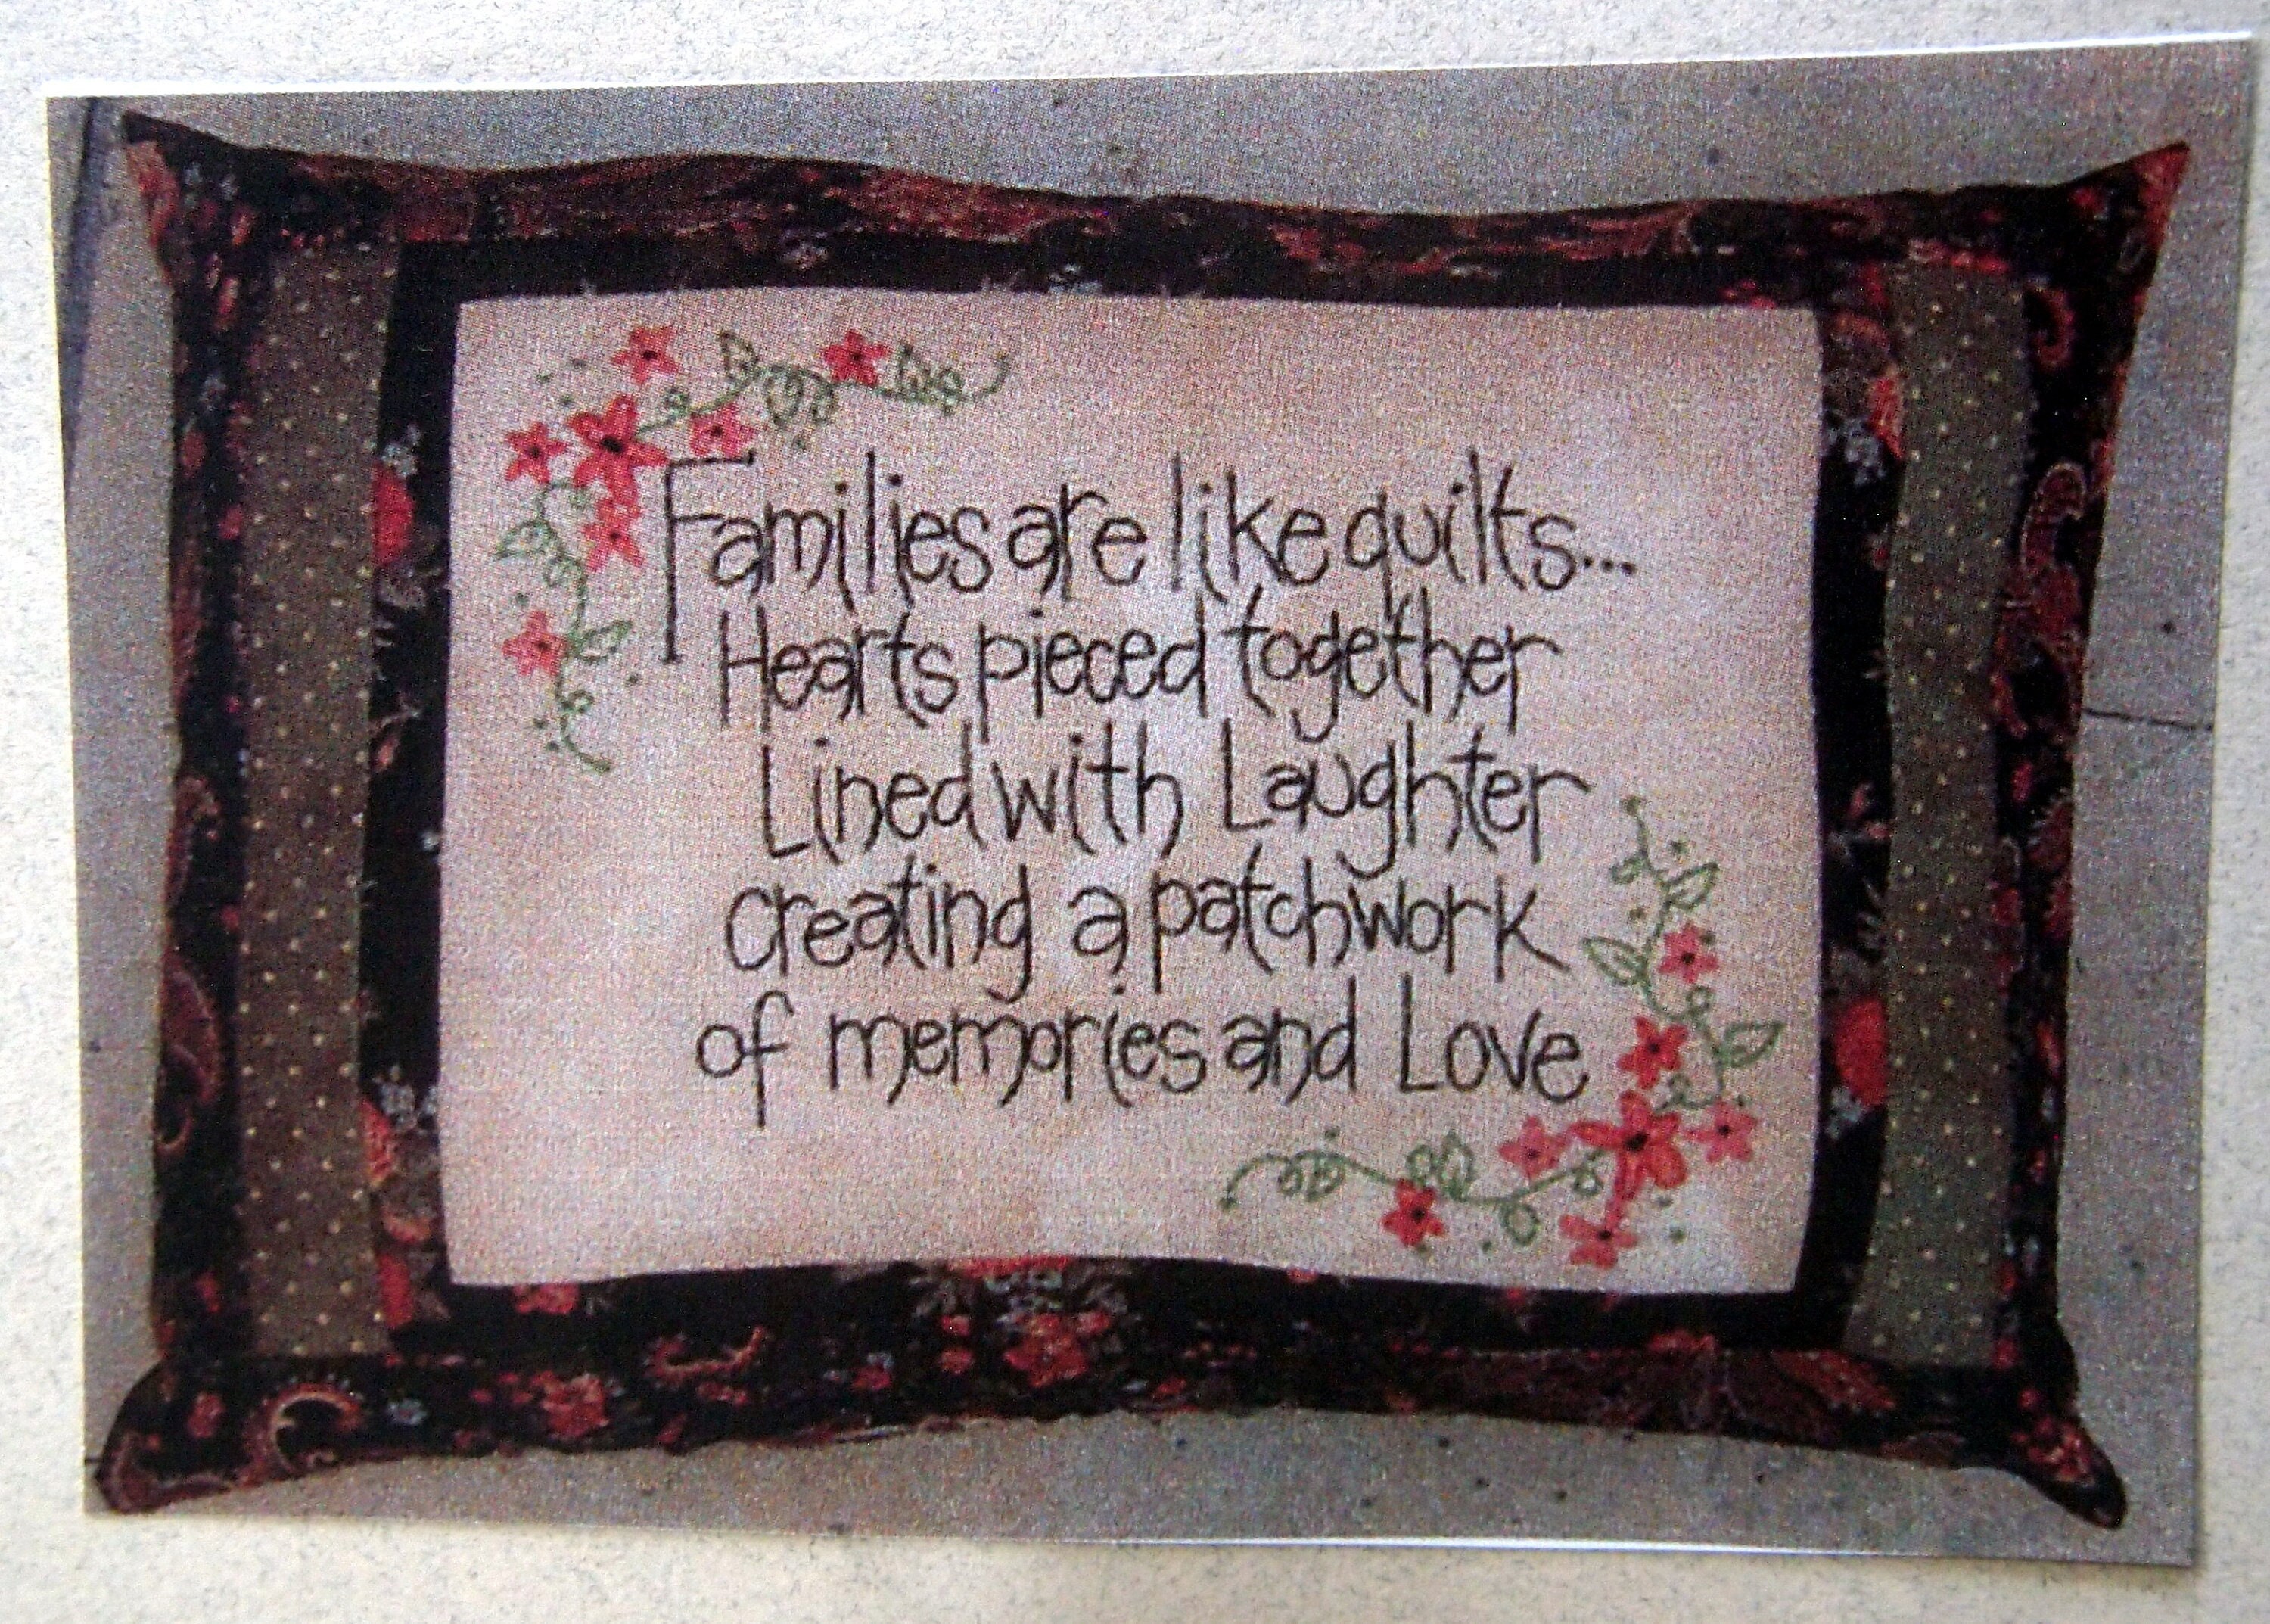 Families are like quilts...
Hearts pieced together
Lined with Laughter
creating a patchwork
of memories and Love